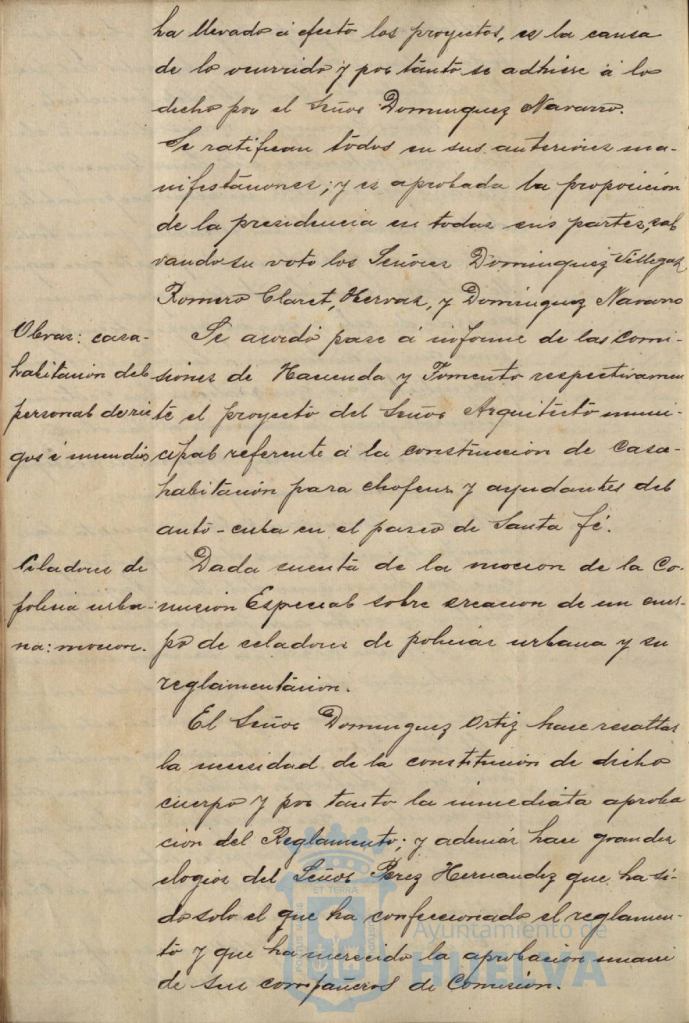 ha llevado á efecto los proyectos, es la causa
de lo ocurrido y por tanto se adhiere á lo
dicho por el Señor Dominguez Navarro.
Se ratifican todos en sus anteriores ma-
nifestaciones; y es aprobada la proposición
de la presidencia en todas sus partes, sal
vando su voto los Señores Dominguez Villegas
Romero Claret, Hervas, y Dominguez Navarro
Obras: casa-
habitacion del
personal de rie
gos é incendios
Se acordó pase á informe de las Comi-
siones de Hacienda y Fomento respectivamen
te el proyecto del Señor Arquitecto muni-
cipal referente á la construccion de casa-
habitación para chofeur y ayudantes del
auto-cuba en el paseo de Santa fé.
Celadores de
policia urba-
na: mocion.
Dada cuenta de la mocion de la Co-
mision Especial sobre creacion de un cuer-
po de celadores de policias urbana y su
reglamentacion.
El Señor Dominguez Ortiz hace resaltar
la necesidad de la constitucion de dicho
cuerpo y por tanto la inmediata aproba
cion del Reglamento; y además hace grandes
elogios del Señor Perez Hernandez que ha si-
do solo el que ha confeccionado el reglamen-
to y que ha merecido la aprobacion unani
de sus compañeros de Comisión.
ET TERRA
Ayuntamiento de
HUELVA